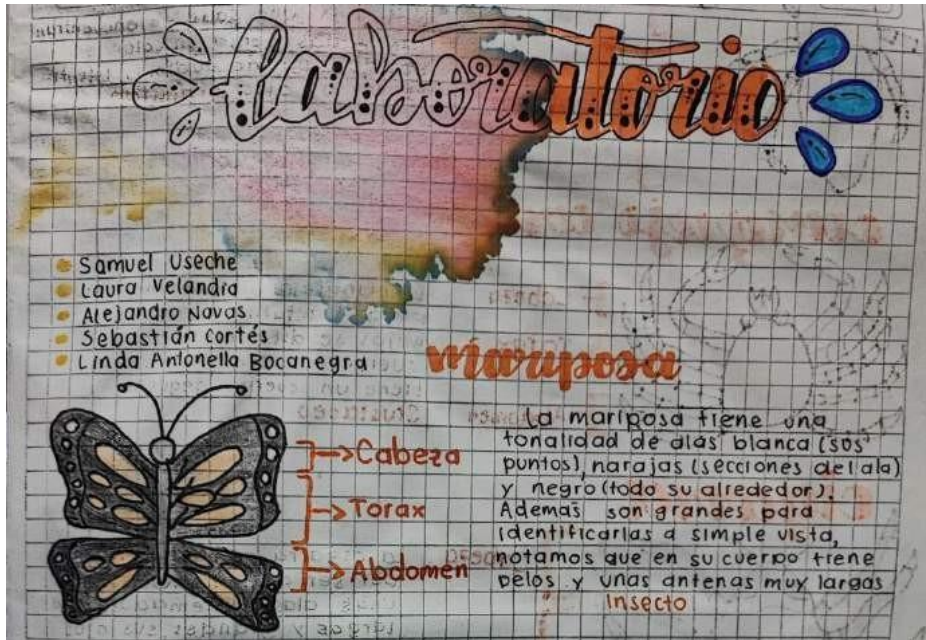 Laboratorio
Samuel Useche
Laura Velandia
Alejandro Navas
Sebastián Cortés
Linda Antonella Bocanegra
mariposa
Cabeza
Torax
Abdomen
La mariposa tiene una
tonalidad de alas blanca (sus
puntos), narajas (secciones del ala)
y negro (todo su alrededor).
Además son grandes para
identificarlas a simple vista,
notamos que en su cuerpo tiene
pelos y unas antenas muy largas
Insecto